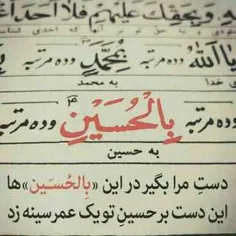 وَ بِحَقِّكَ عَلَيْهِمْ فَلا اَحَدَ
يا اَللهُ وده مرتبه بِمُحَمَّدٍ وده مرتبه
خدا به محمد
وده مرتبه بِالْحُسَيْنِ وده مرتبه
به حسین
دستِ مرا بگیر در این «بِالحُسَـین» ها
این دست بر حسینِ تو یک عمر سینه زد